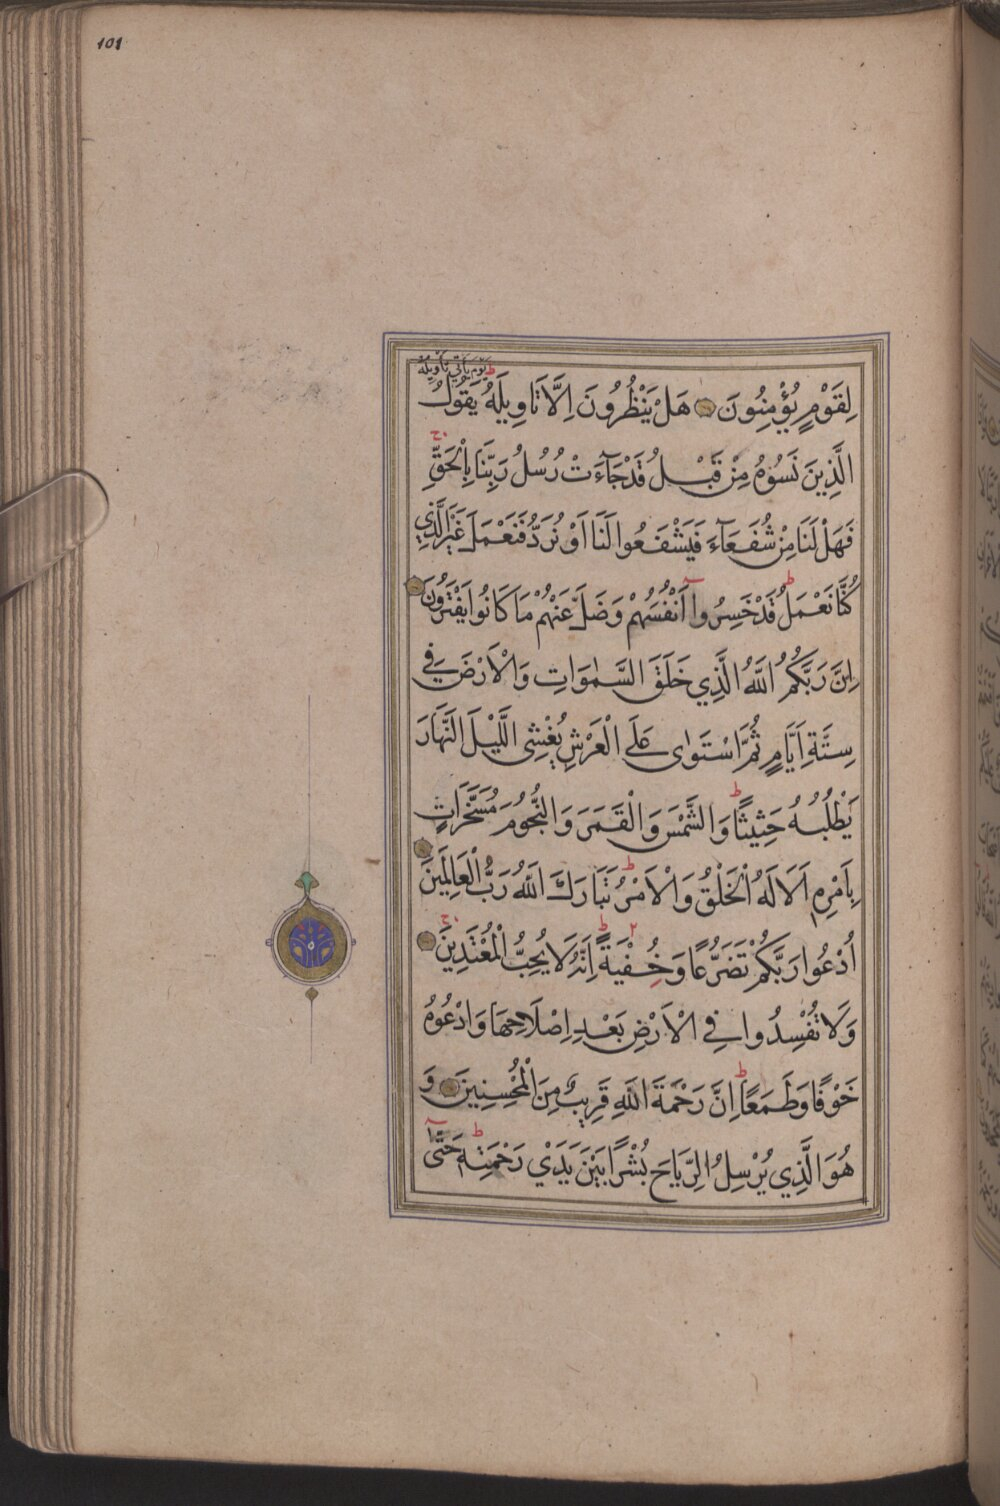 101
يَوْمَ يَأْتِي تَأْوِيلُهُ
لِقَوْمٍ يُؤْمِنُونَ هَلْ يَنْظُرُونَ اِلَّا تَاْوِيلَهُ يَقُولُ
الَّذِينَ نَسُوهُ مِنْ قَبْلُ قَدْ جَآءَتْ رُسُلُ رَبِّنَا بِالْحَقِّ
فَهَلْ لَنَا مِنْ شُفَعَآءَ فَيَشْفَعُوا لَنَا اَوْ نُرَدُّ فَنَعْمَلَ غَيْرَ الَّذِي
كُنَّا نَعْمَلُ قَدْ خَسِرُوا اَنْفُسَهُمْ وَضَلَّ عَنْهُمْ مَا كَانُوا يَفْتَرُونَ
اِنَّ رَبَّكُمُ اللَّهُ الَّذِي خَلَقَ السَّمٰوَاتِ وَالْاَرْضَ فِي
سِتَّةِ اَيَّامٍ ثُمَّ اسْتَوٰى عَلَى الْعَرْشِ يُغْشِى اللَّيْلَ النَّهَارَ
يَطْلُبُهُ حَثِيثًا وَالشَّمْسَ وَالْقَمَرَ وَالنُّجُومَ مُسَخَّرَاتٍ
بِاَمْرِهِ اَلَا لَهُ الْخَلْقُ وَالْاَمْرُ تَبَارَكَ اللَّهُ رَبُّ الْعَالَمِينَ
اُدْعُوا رَبَّكُمْ تَضَرُّعًا وَخُفْيَةً اِنَّهُ لَا يُحِبُّ الْمُعْتَدِينَ
وَلَا تُفْسِدُوا فِي الْاَرْضِ بَعْدَ اِصْلَاحِهَا وَادْعُوهُ
خَوْفًا وَطَمَعًا اِنَّ رَحْمَةَ اللَّهِ قَرِيبٌ مِنَ الْمُحْسِنِينَ وَ
هُوَ الَّذِي يُرْسِلُ الرِّيَاحَ بُشْرًا بَيْنَ يَدَيْ رَحْمَتِهِ حَتّٰى